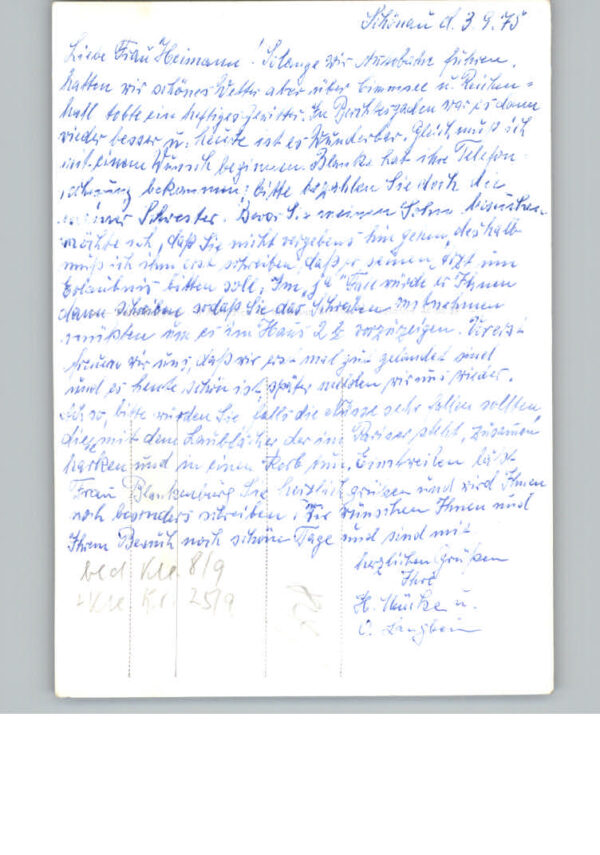 Schönau d. 3.9.75
Liebe Frau Heimann! Solange wir Autobahn fuhren,
hatten wir schönes Wetter aber über Cimmsee u. Reichen-
hall tobte ein heftiges Gewitter. In Berchtesgaden war es dann
wieder besser u. heute ist es Wunderbar. Gleich muß ich
mit einem Wunsch beginnen. Blanke hat ihre Telefon-
rechnung bekommen; bitte bezahlen Sie doch die
meiner Schwester. Bevor Sie meinen Sohn besuchen
möchte ich, daß Sie nicht vergebens hin gehen, deshalb
muß ich ihm erst schreiben, daß er seinen Arzt um
Erlaubnis bitten soll. Im "ja" Fall würde er Ihnen
dann schreiben sodaß Sie das Schreiben mitnehmen
müßten um es im Haus 2 vorzuzeigen. Vorerst
freuen wir uns, daß wir erst mal gut gelandet sind
und es heute schön ist, später melden wir uns wieder.
Ach so, bitte würden Sie, falls die Nüsse sehr fallen sollten,
diese mit dem Laubfächer der im steht, zusammen
harken und in einen Korb tun. Einstweilen läßt
Frau Blankenburg Sie herzlich grüßen und wird Ihnen
noch besonders schreiben. Wir wünschen Ihnen und
Ihrem Besuch noch schöne Tage und sind mit
herzlichen Grüßen
Ihre
H. Mücke u.
O. Langbein
8/9
25/9